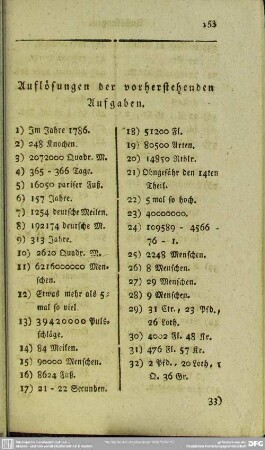 163
Auflösungen der vorherstehenden
Aufgaben.
1) Im Jahre 1786.
2) 248 Knochen.
3) 2072000 Quadr. M.
4) 365 - 366 Tage.
5) 16050 pariser Fuß.
6) 157 Jahre.
7) 1254 deutsche Meilen.
8) 192174 deutsche M.
9) 313 Jahre.
10) 2620 Quadr. M.
11) 6216000000 Men-
schen.
12) Etwas mehr als 5-
mal so viel.
13) 39420000 Puls-
schläge.
14) 84 Meilen.
15) 90000 Menschen.
16) 8624 Fuß.
17) 21 - 22 Secunden.
18) 51200 Fl.
19) 80500 Arten.
20) 14850 Rthlr.
21) Ohngefähr den 14ten
Theil.
22) 5 mal so hoch.
23) 40000000.
24) 109589 - 4566 -
76 - 1.
25) 2248 Menschen.
26) 8 Menschen.
27) 29 Menschen.
28) 9 Menschen.
29) 31 Ctr., 23 Pfd.,
26 Loth.
30) 4002 Fl. 48 Kr.
31) 476 Fl. 57 Kr.
32) 2 Pfd., 20 Loth, 1
Q. 36 Gr.
33)